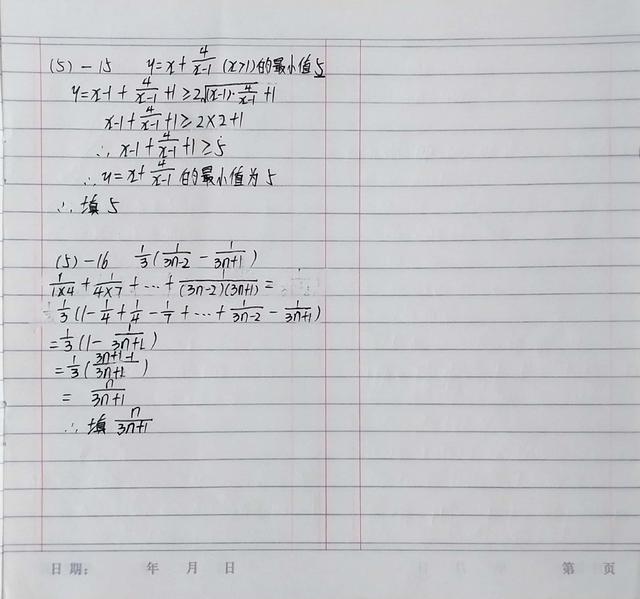 (5)－15　y=x+4/(x-1) (x>1)的最小值5
y=x-1+4/(x-1)+1≥2√((x-1)·4/(x-1))+1
x-1+4/(x-1)+1≥2×2+1
∴ x-1+4/(x-1)+1≥5
∴ y=x+4/(x-1)的最小值为5
∴ 填5
(5)－16　1/3(1/(3n-2)-1/(3n+1))
1/(1×4)+1/(4×7)+…+1/((3n-2)(3n+1))=
1/3(1-1/4+1/4-1/7+…+1/(3n-2)-1/(3n+1))
=1/3(1-1/(3n+1))
=1/3((3n+1-1)/(3n+1))
=n/(3n+1)
∴ 填 n/(3n+1)
日期: 年 月 日 第 页